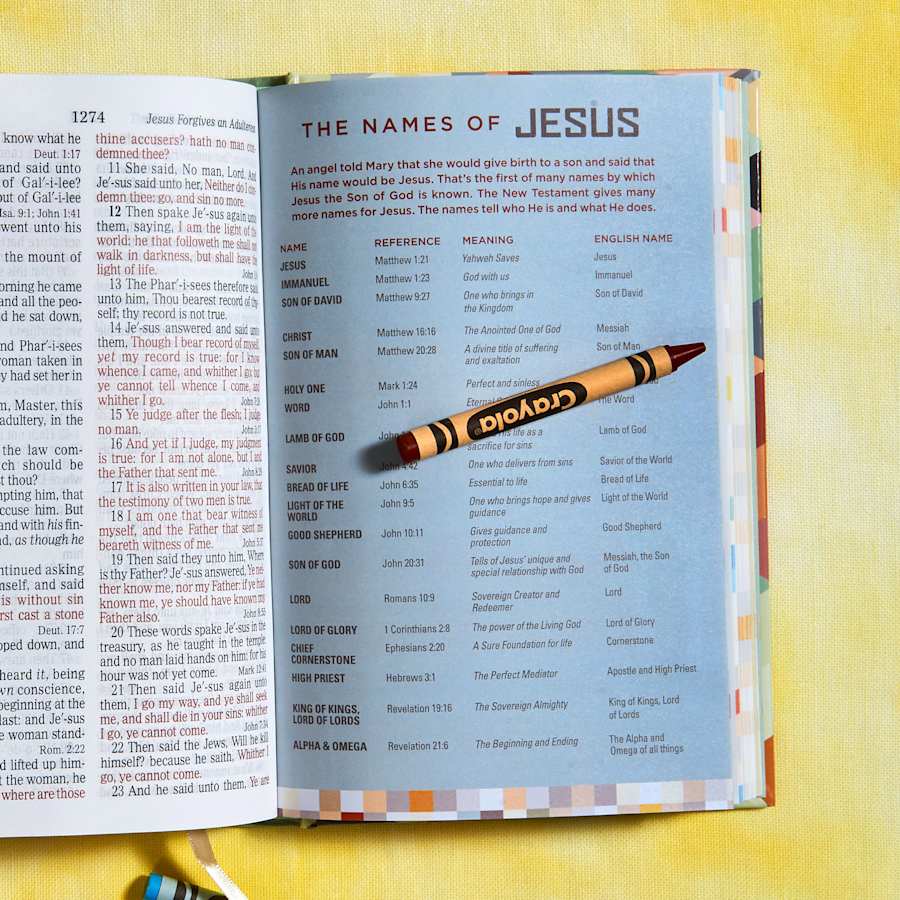 1274
Jesus Forgives an Adulteress
know what he
Deut. 1:17
and said unto
of Gal′-i-lee?
out of Gal′-i-lee
Isa. 9:1; John 1:41
went unto his
the mount of
orning he came
and all the peo-
d he sat down,
nd Phar′-i-sees
woman taken in
y had set her in
m, Master, this
adultery, in the
the law com-
ch should be
st thou?
mpting him, that
ccuse him. But
and with his fin-
nd, as though he
him
ntinued asking
mself, and said
is without sin
rst cast a stone
Deut. 17:7
oped down, and
heard it, being
wn conscience,
beginning at the
last: and Je′-sus
e woman stand-
Rom. 2:22
d lifted up him-
t the woman, he
where are those
thine accusers? hath no man con-
demned thee?
11 She said, No man, Lord. And
Je′-sus said unto her, Neither do I con-
demn thee: go, and sin no more.
12 Then spake Je′-sus again unto
them, saying, I am the light of the
world: he that followeth me shall not
walk in darkness, but shall have the
light of life.
13 The Phar′-i-sees therefore said
unto him, Thou bearest record of thy-
self; thy record is not true.
14 Je′-sus answered and said unto
them, Though I bear record of myself,
yet my record is true: for I know
whence I came, and whither I go; but
ye cannot tell whence I come, and
whither I go. John 7:21
15 Ye judge after the flesh; I judge
no man. John 3:17
16 And yet if I judge, my judgment
is true: for I am not alone, but I and
the Father that sent me. John 8:29
17 It is also written in your law, that
the testimony of two men is true.
18 I am one that bear witness of
myself, and the Father that sent me
beareth witness of me. John 5:37
19 Then said they unto him, Where
is thy Father? Je′-sus answered, Ye nei-
ther know me, nor my Father: if ye had
known me, ye should have known my
Father also. John 8:55
20 These words spake Je′-sus in the
treasury, as he taught in the temple:
and no man laid hands on him; for his
hour was not yet come. Mark 12:41
21 Then said Je′-sus again unto
them, I go my way, and ye shall seek
me, and shall die in your sins: whither
I go, ye cannot come. John 7:34
22 Then said the Jews, Will he kill
himself? because he saith, Whither I
go, ye cannot come.
23 And he said unto them, Ye are
THE NAMES OF JESUS
An angel told Mary that she would give birth to a son and said that
His name would be Jesus. That's the first of many names by which
Jesus the Son of God is known. The New Testament gives many
more names for Jesus. The names tell who He is and what He does.
NAME REFERENCE MEANING ENGLISH NAME
JESUS Matthew 1:21 Yahweh Saves Jesus
IMMANUEL Matthew 1:23 God with us Immanuel
SON OF DAVID Matthew 9:27 One who brings in Son of David
the Kingdom
CHRIST Matthew 16:16 The Anointed One of God Messiah
SON OF MAN Matthew 20:28 A divine title of suffering Son of Man
and exaltation
HOLY ONE Mark 1:24 Perfect and sinless
WORD John 1:1 Eternal The Word
LAMB OF GOD John life as a Lamb of God
sacrifice for sins
SAVIOR John 4:42 One who delivers from sins Savior of the World
BREAD OF LIFE John 6:35 Essential to life Bread of Life
LIGHT OF THE John 9:5 One who brings hope and gives Light of the World
WORLD guidance
GOOD SHEPHERD John 10:11 Gives guidance and Good Shepherd
protection
SON OF GOD John 20:31 Tells of Jesus' unique and Messiah, the Son
special relationship with God of God
LORD Romans 10:9 Sovereign Creator and Lord
Redeemer
LORD OF GLORY 1 Corinthians 2:8 The power of the Living God Lord of Glory
CHIEF Ephesians 2:20 A Sure Foundation for life Cornerstone
CORNERSTONE
HIGH PRIEST Hebrews 3:1 The Perfect Mediator Apostle and High Priest
KING OF KINGS, Revelation 19:16 The Sovereign Almighty King of Kings, Lord
LORD OF LORDS of Lords
ALPHA & OMEGA Revelation 21:6 The Beginning and Ending The Alpha and
Omega of all things
Crayola